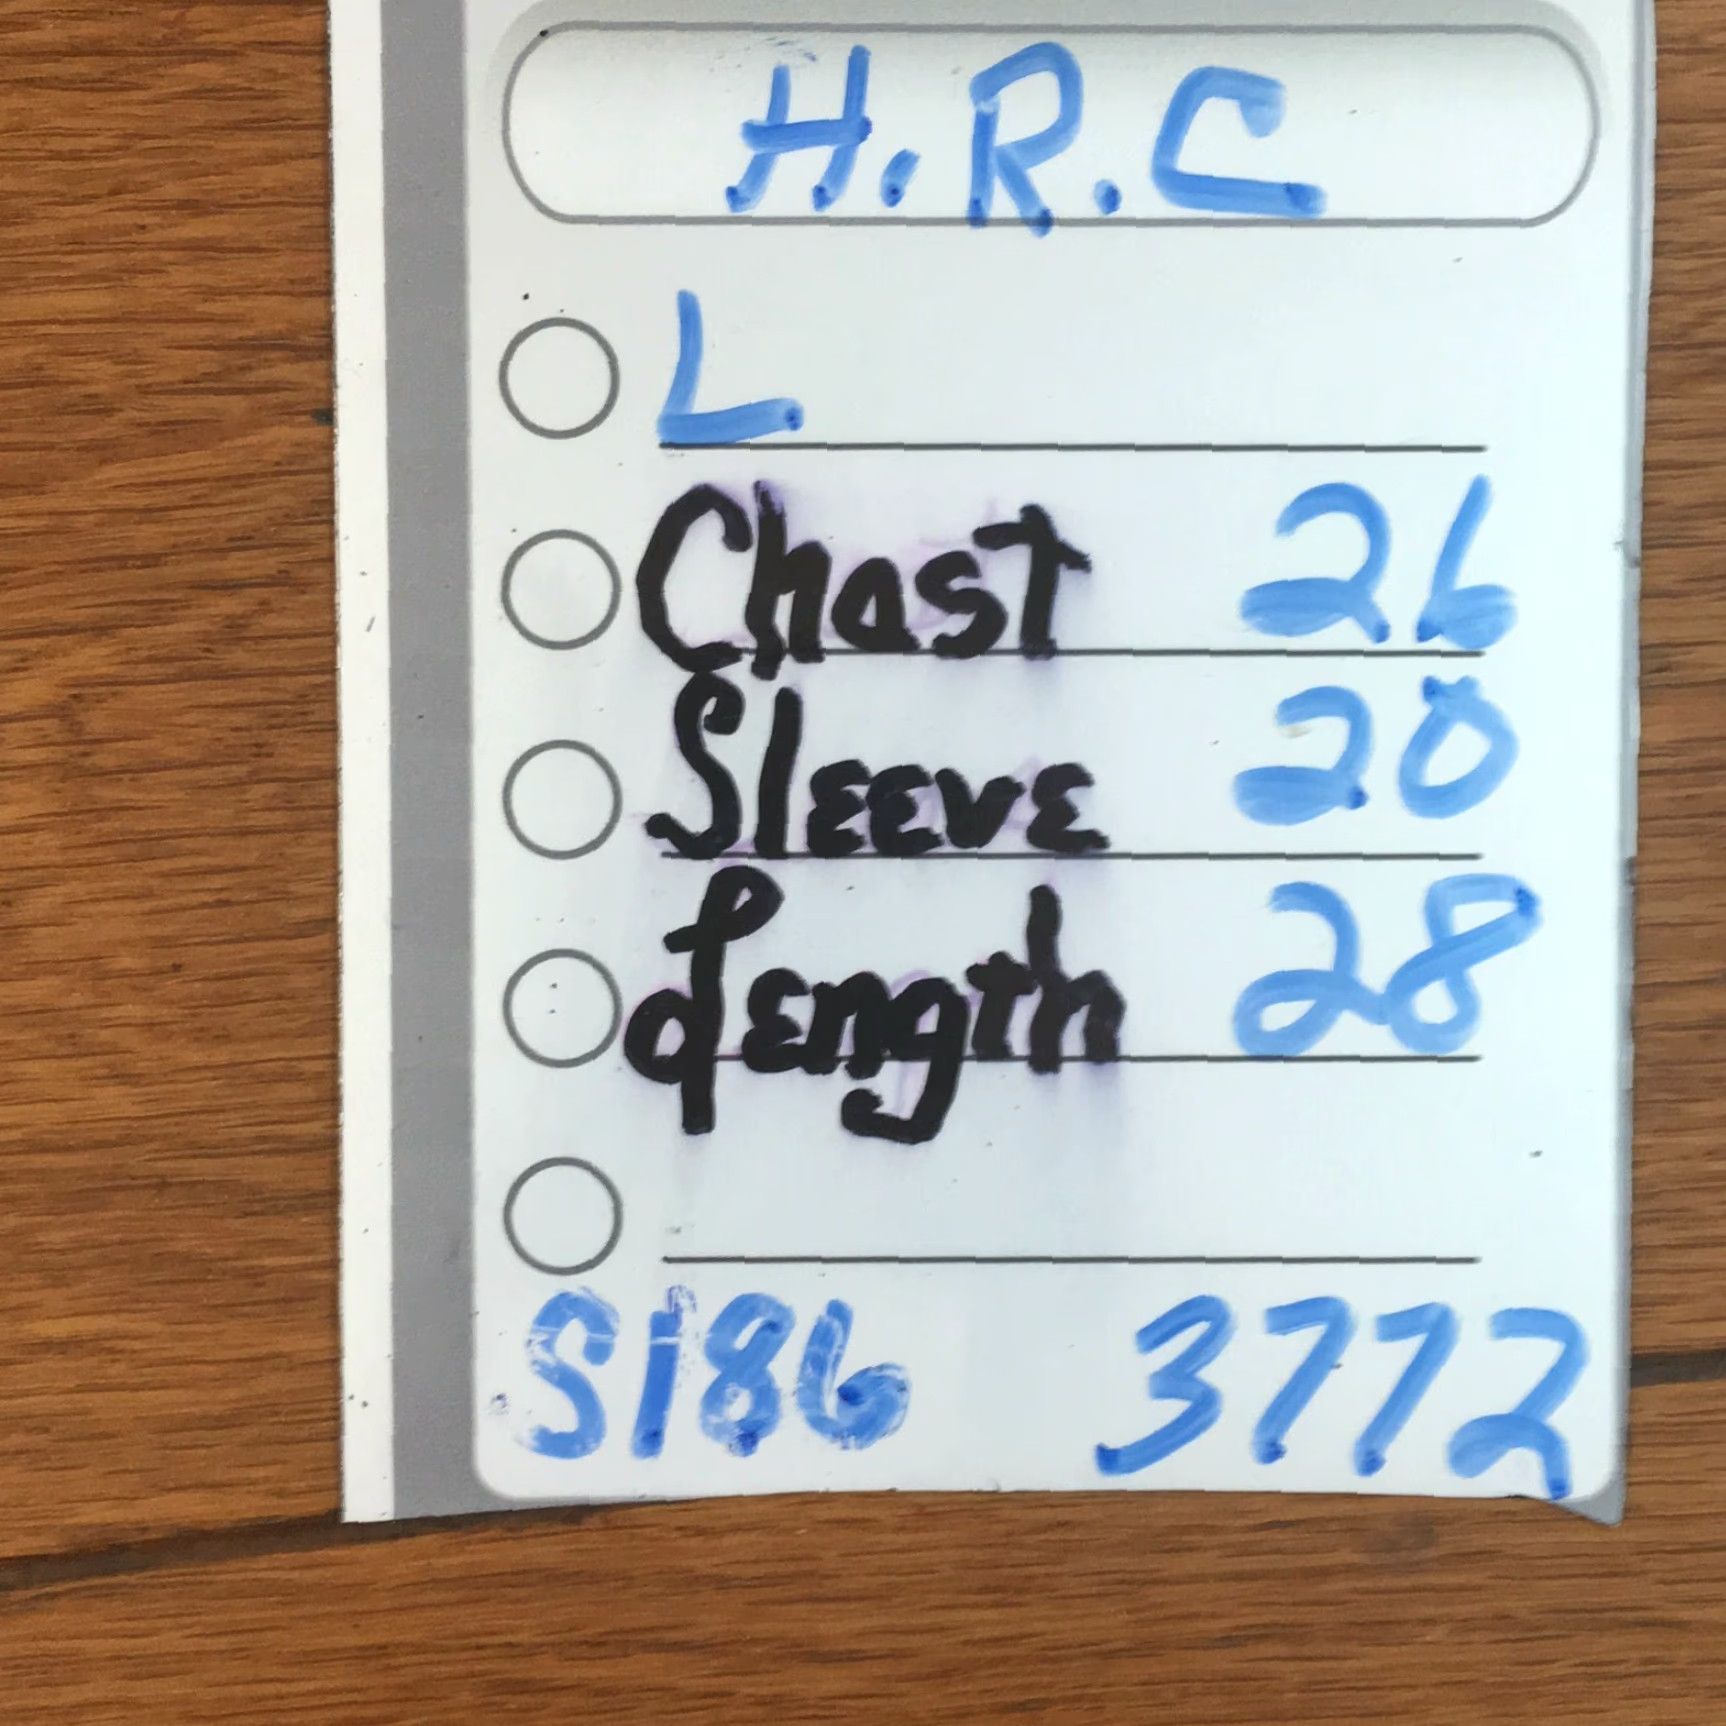 H.R.C
L
Chast 26
Sleeve 20
Length 28
S186 3772